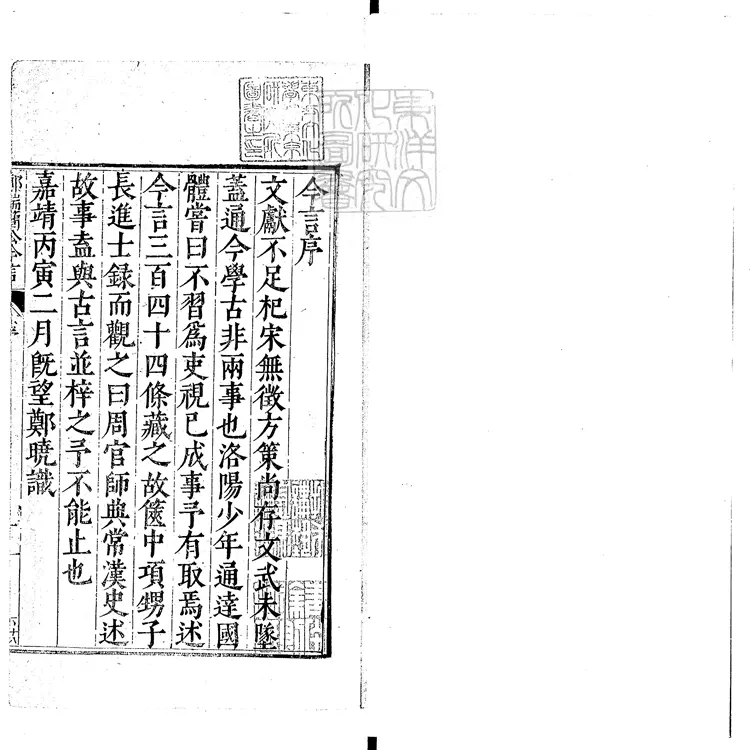 今言序
文獻不足杞宋無徵方策尚存文武未墜
蓋通今學古非兩事也洛陽少年通達國
體嘗曰不習爲吏視已成事予有取焉述
今言三百四十四條藏之故篋中項甥子
長進士録而觀之曰周官師典常漢史述
故事盍與古言並梓之予不能止也
嘉靖丙寅二月旣望鄭曉識
鄭端簡公今言
序
東洋文化研究所圖書